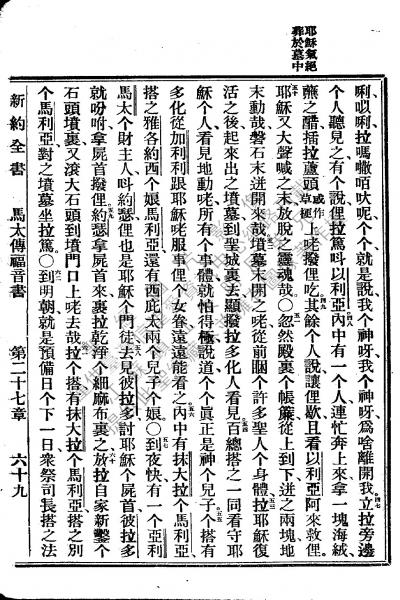 耶穌氣絕
葬於墓中
唎以唎拉嗎撒咟吠呢个就是說我个神呀我个神呀爲啥離開我立拉旁邊
个人聽見之有个說俚拉篤呌以利亞內中有一个人連忙奔上來拿一塊海絨
蘸之醋揷拉蘆頭或作草梗上咾撥俚吃其餘个人說讓俚歇且看以利亞阿來救俚
耶穌又大聲喊之末放脫之靈魂哉○忽然殿裏个帳簾從上到下迸之兩塊地
末動哉磐石末迸開來哉墳墓末開之咾從前睏个許多聖人个身體拉耶穌復
活之後起來出之墳墓到聖城裏去顯撥拉多化人看見百總搭之一同看守耶
穌个人看見地動咾所有个事體就怕得極說道个个眞正是神个兒子个搭有
多化從加利利跟耶穌咾服事俚个女眷遠遠能看之內中有抹大拉个馬利亞
搭之雅各約西个娘馬利亞還有西庇太兩个兒子个娘○到夜快有一个亞利
馬太个財主人呌約瑟俚也是耶穌个門徒去見彼拉多討耶穌个屍首彼拉多
就吩咐拿屍首撥俚約瑟拿屍首來裹拉乾淨个細麻布裏之放拉自家新鑿个
石頭墳裏又滾大石頭到墳門口上咾去哉拉个搭有抹大拉个馬利亞搭之別
个馬利亞對之墳墓坐拉篤○到明朝就是預備日个下一日衆祭司長搭之法
新約全書 馬太傳福音書 第二十七章 六十九